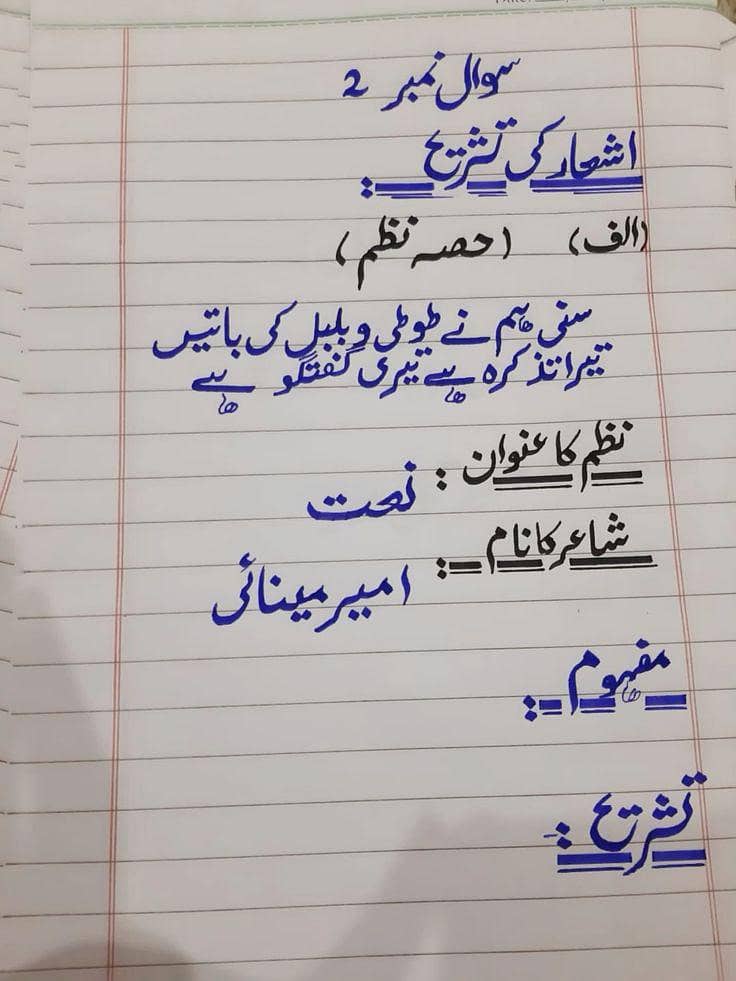 سوال نمبر 2
اشعار کی تشریح :
(الف) (حصہ نظم)
سنی ہم نے طوطی و بلبل کی باتیں
تیرا تذکرہ ہے تیری گفتگو ہے
نظم کا عنوان : نعت
شاعر کا نام : امیر مینائی
مفہوم :
تشریح :